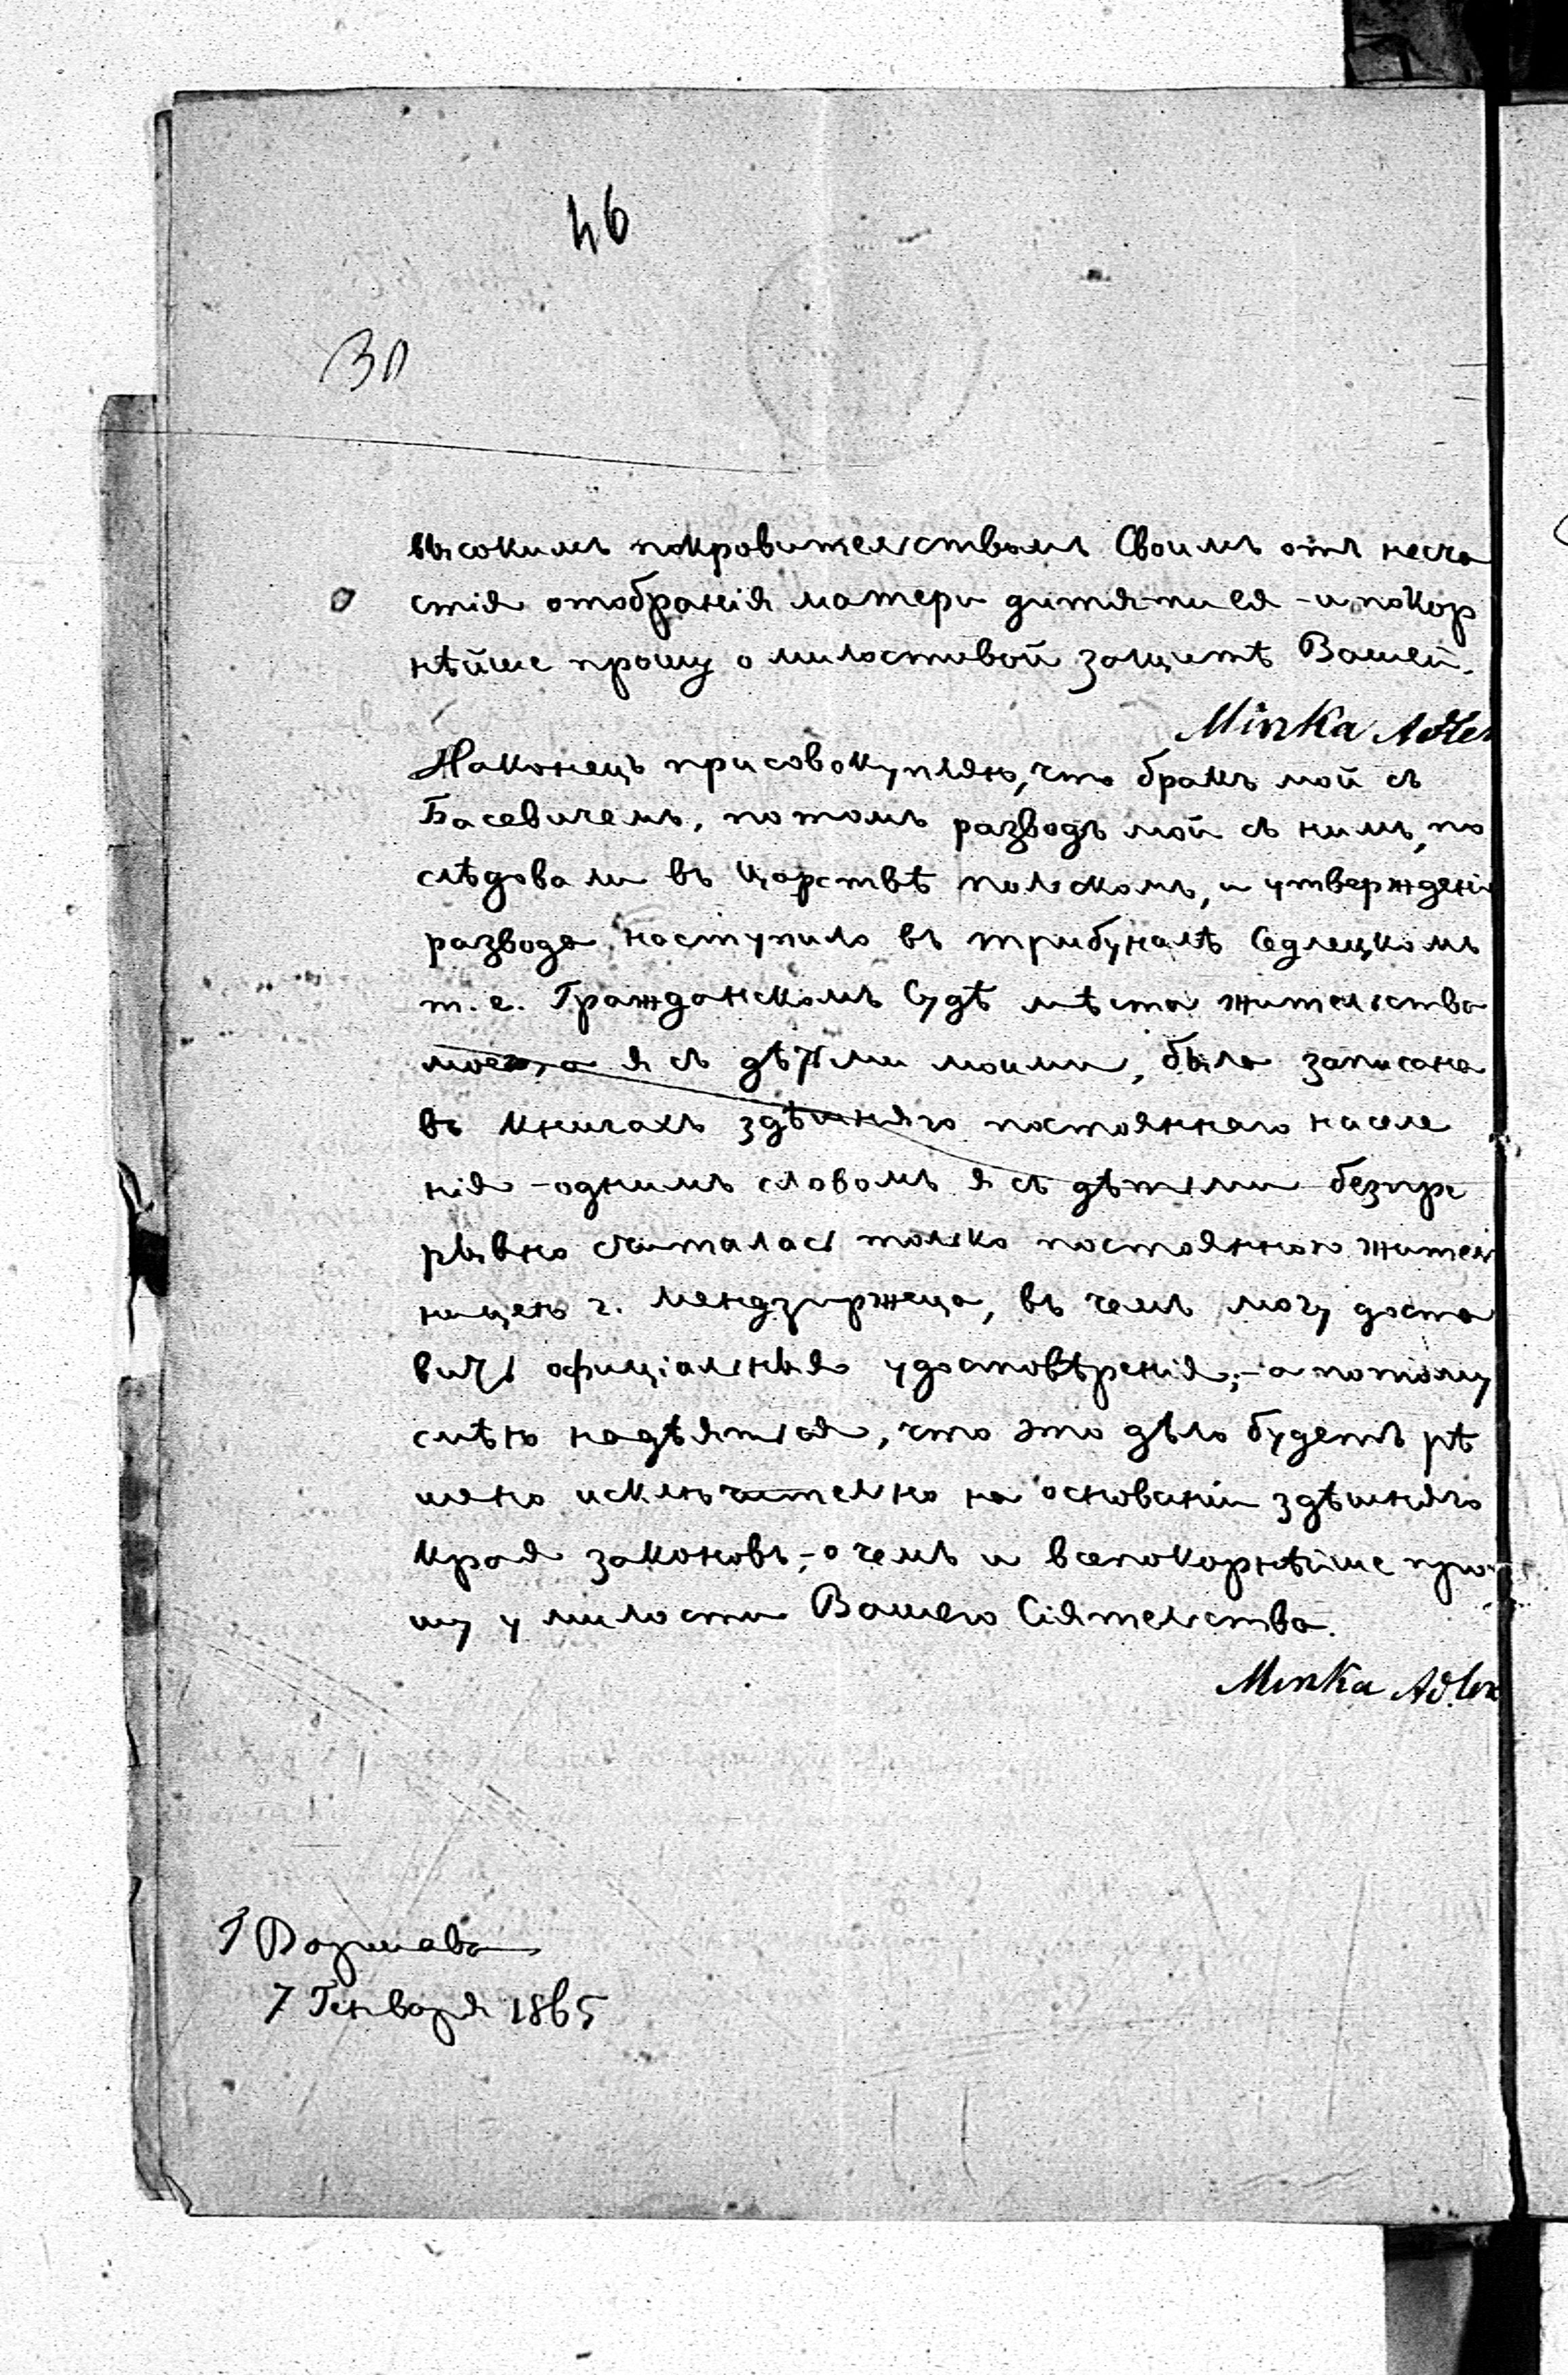 46
30
высокимъ покровительствомъ Своимъ отъ несча
стія отобранія матери дитяти ея - и покор
нѣйше прошу о милостивой защитѣ Вашей.
Minka Adler
Наконецъ присовокупляю, что бракъ мой съ
Басевичемъ, потомъ разводъ мой съ нимъ, по
слѣдовали въ Царствѣ Польскомъ, и утвержденіе
развода наступило въ трибуналѣ Седлецкомъ
т. е. Гражданскомъ Судѣ мѣста жительства
моего, а я съ дѣтьми моими, была записана
въ книгахъ здѣшняго постояннаго населе
нія - однимъ словомъ я съ дѣтьми безпре
рывно считалась только постоянною житель
ницею г. Мендзыржеца, въ чемъ могу доста
вить офиціальныя удостовѣренія; - а потому
смѣю надѣяться, что это дѣло будетъ рѣ
шено исключительно на основаніи здѣшняго
края законовъ, - о чемъ и всепокорнѣйше про
шу у милости Вашего Сіятельства.
Minka Adler
Г Варшава
7 Генваря 1865